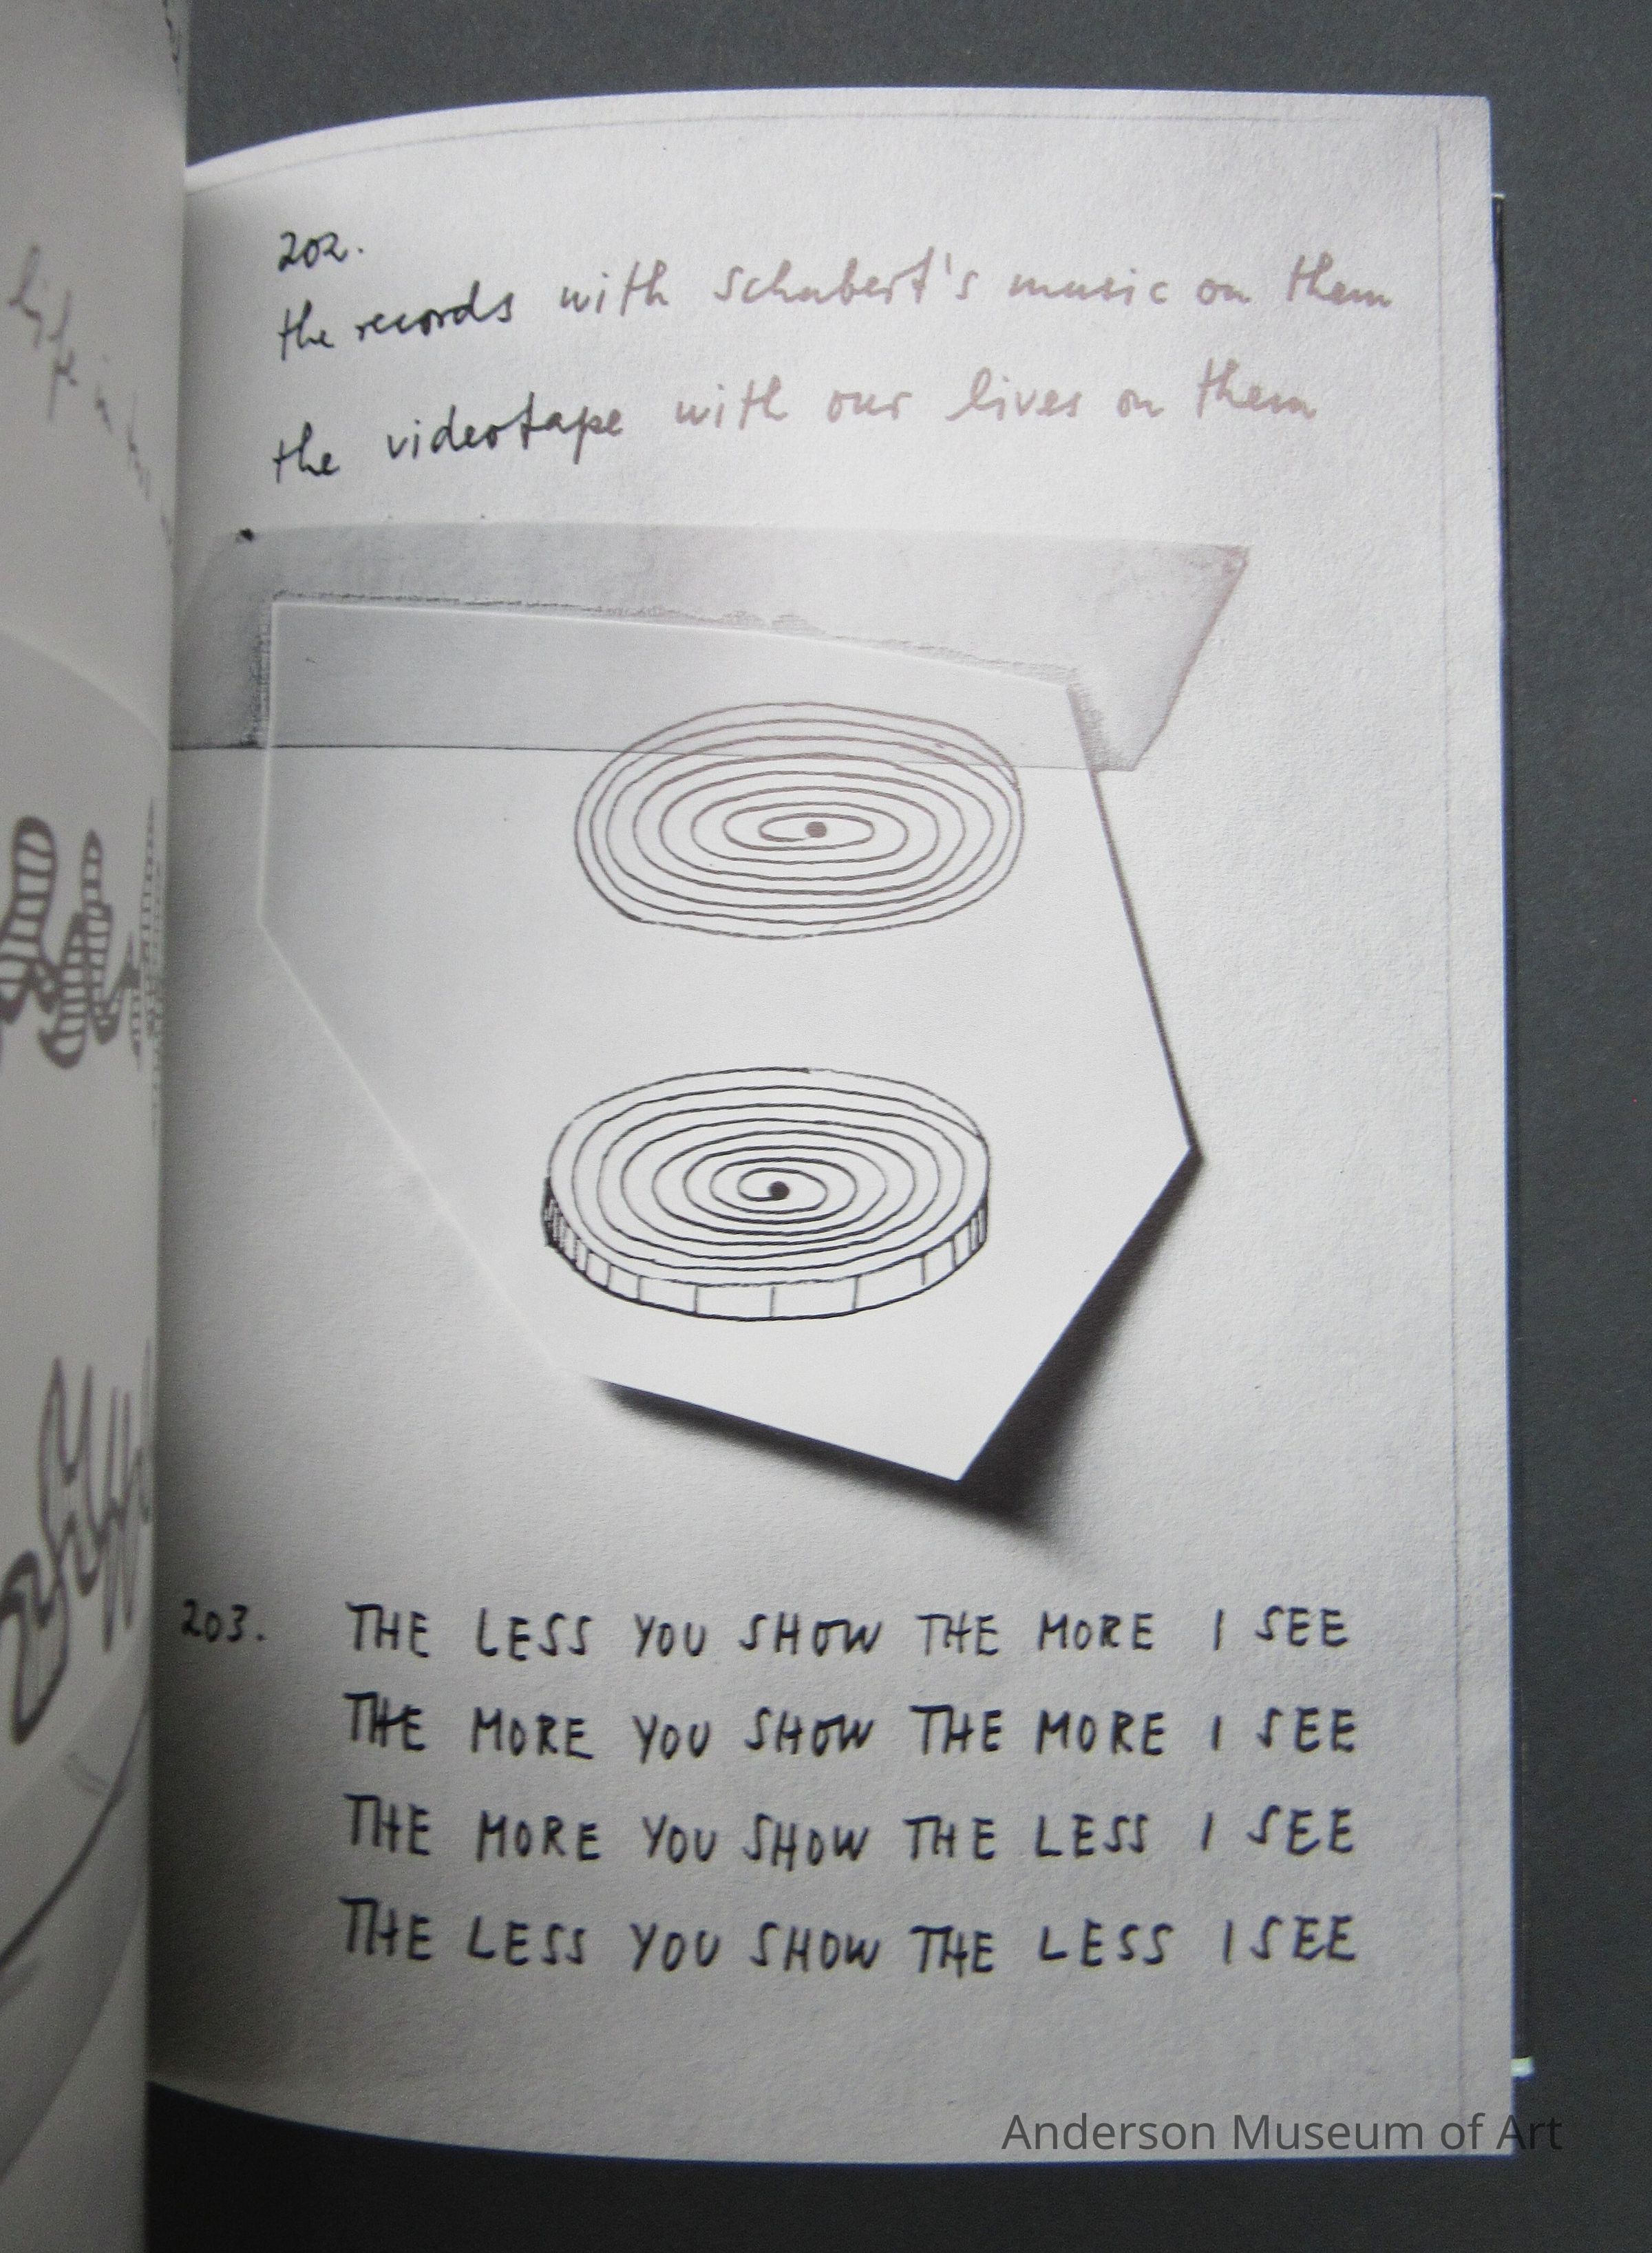 202.
the records with Schubert's music on them
the videotape with our lives on them
203. THE LESS YOU SHOW THE MORE I SEE
THE MORE YOU SHOW THE MORE I SEE
THE MORE YOU SHOW THE LESS I SEE
THE LESS YOU SHOW THE LESS I SEE
Anderson Museum of Art